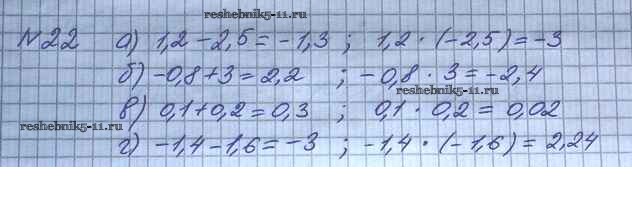 reshebnik5-11.ru
№22 а) 1,2-2,5=-1,3 ; 1,2·(-2,5)=-3
б) -0,8+3=2,2 ; -0,8·3=-2,4
reshebnik5-11.ru
в) 0,1+0,2=0,3 ; 0,1·0,2=0,02
reshebnik5-11.ru
г) -1,4-1,6=-3 ; -1,4·(-1,6)=2,24